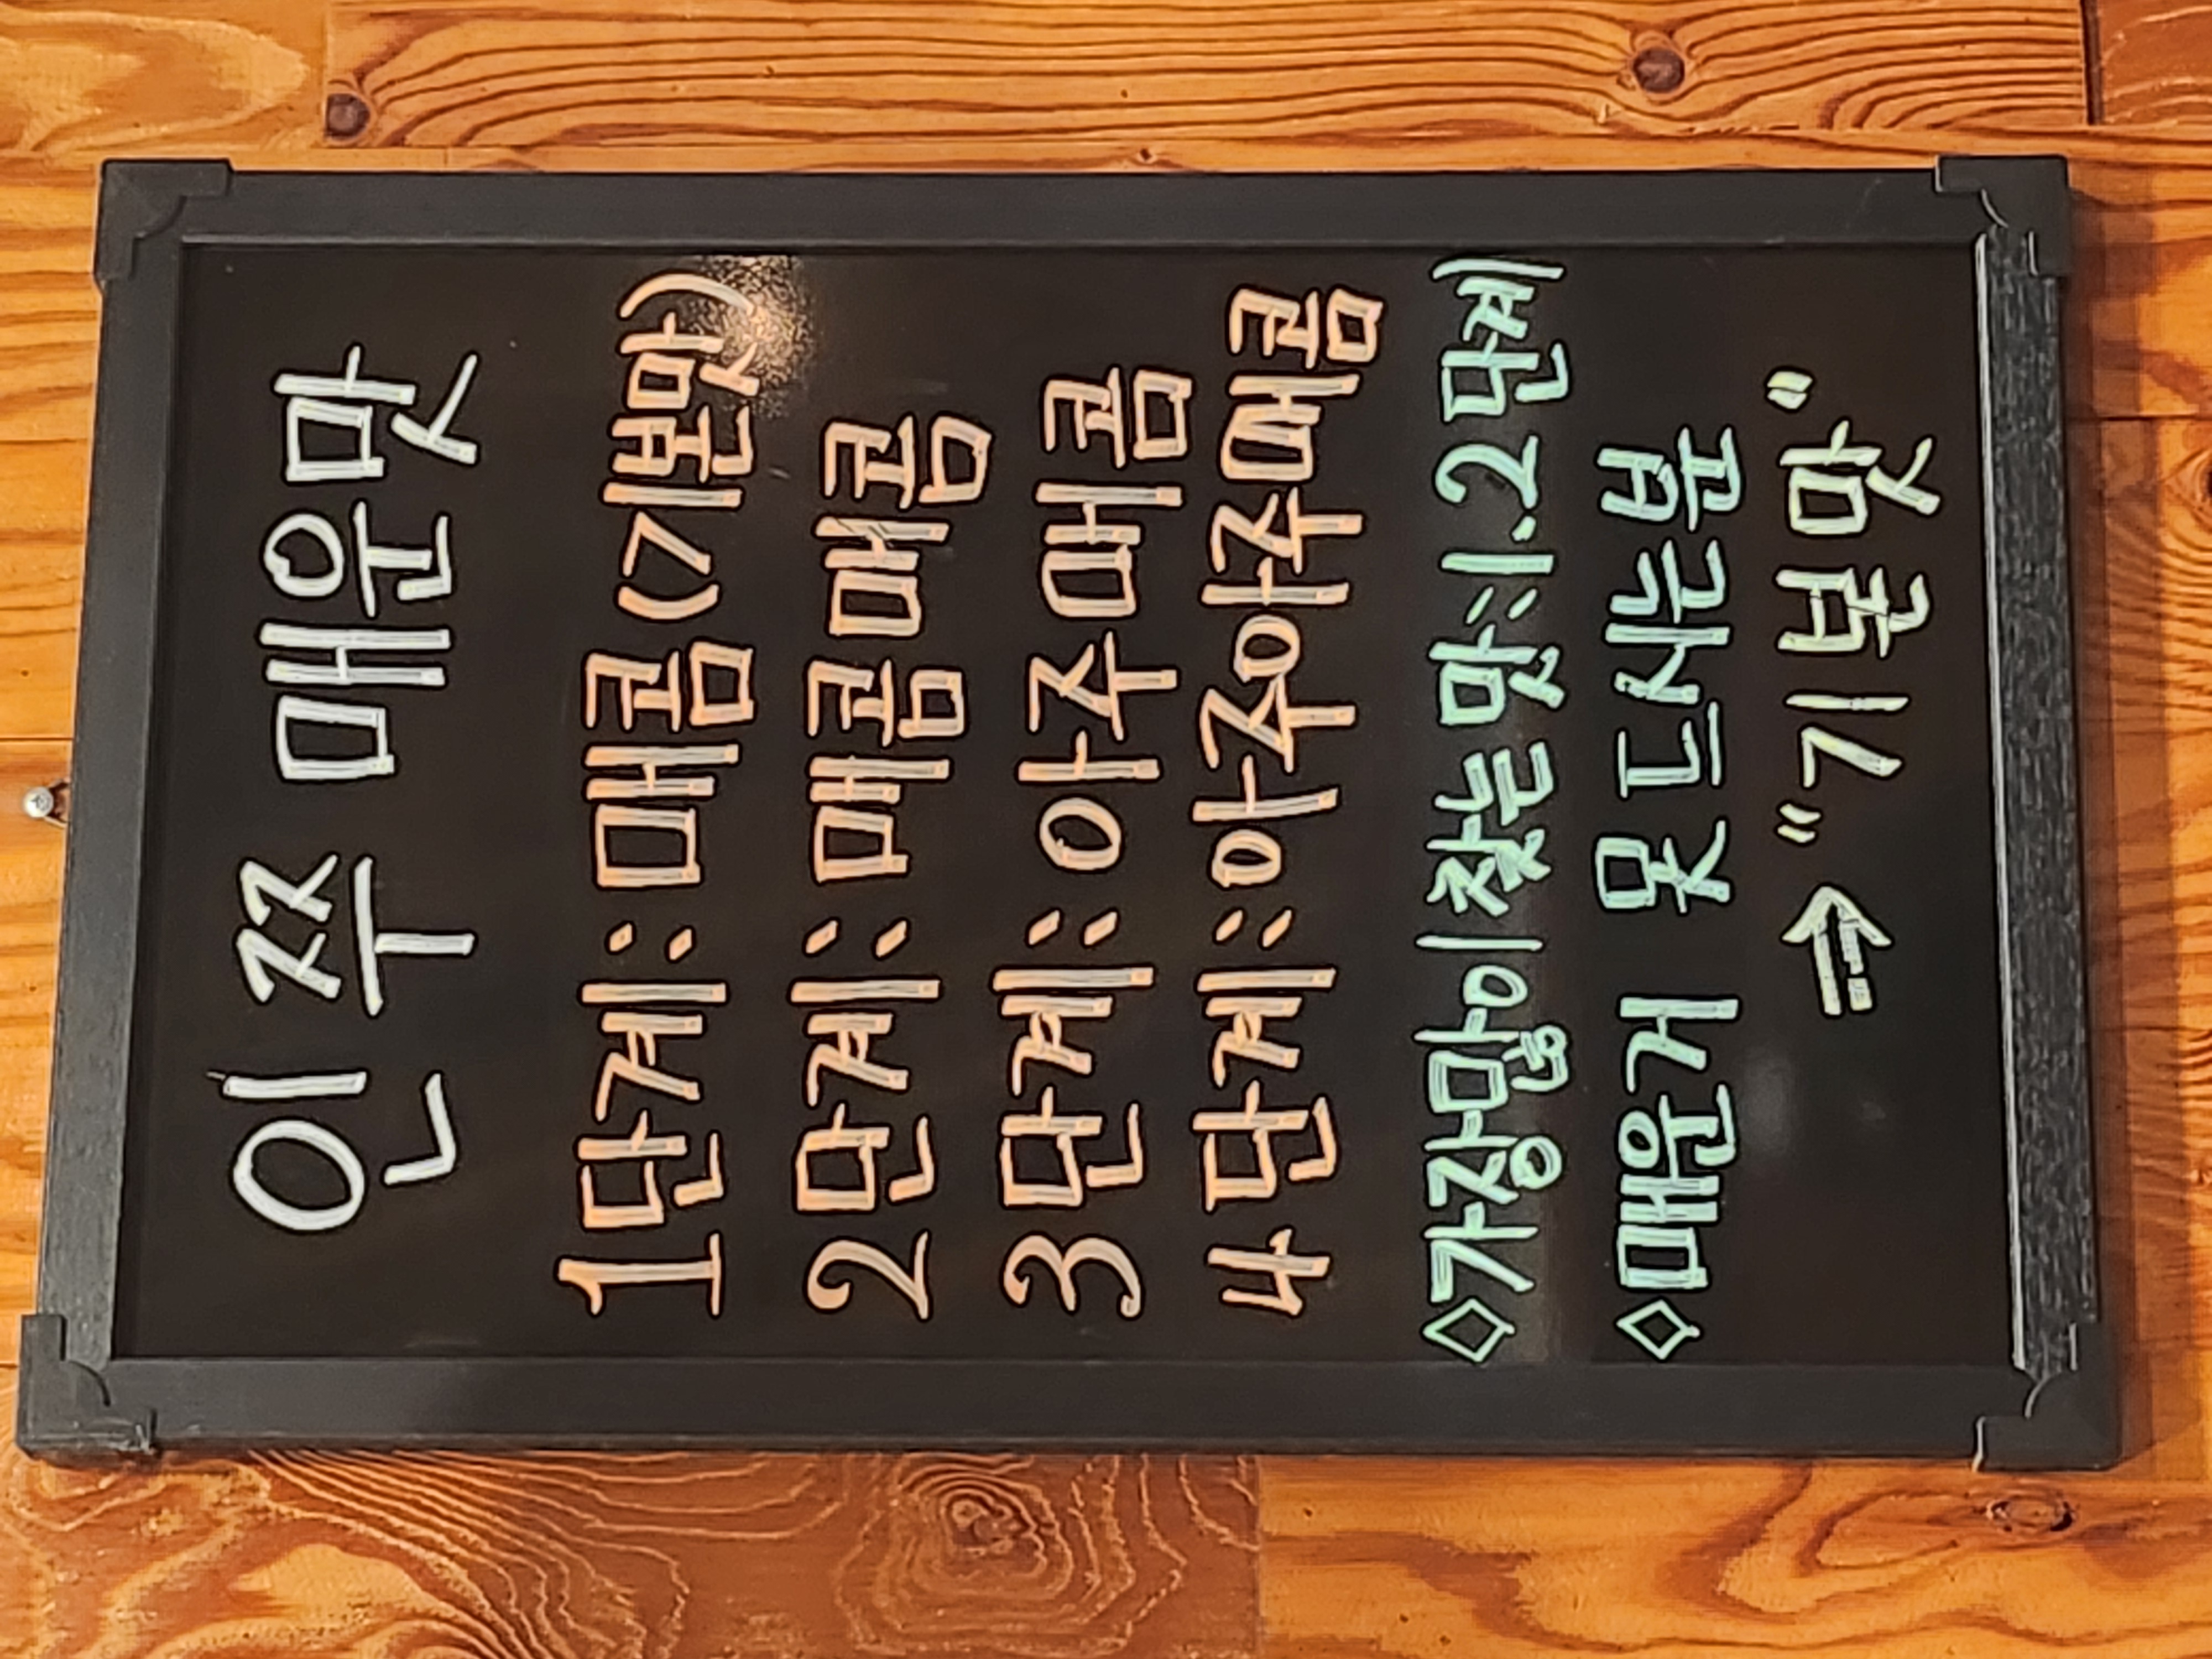 인쭈 매운맛
1단계: 매콤(기본맛)
2단계: 매콤매콤
3단계: 아주매콤
4단계: 아주아주매콤
◇가장많이찾는맛:1.2단계
◇매운거 못드시는분
⇒ "기본맛"